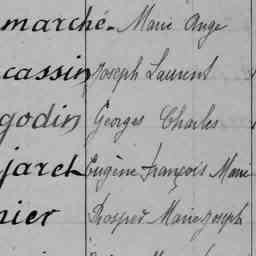 marché. Marie Ange
cassin Joseph Laurent
godin Georges Charles
jaret Eugène François Marie
nier Prosper Marie Joseph